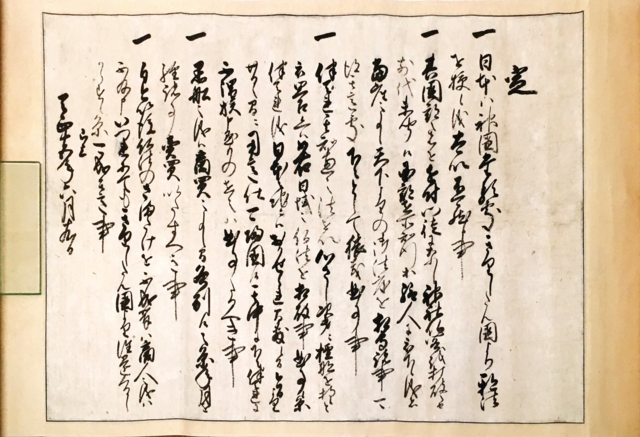 定
一 日本ハ神国たる処きりしたん国より邪法
を授候儀太以不可然候事
一 其国郡之者を近付門徒になし神社仏閣を打破
前代未聞候国郡在所知行等給人に被下候儀者
当座之事候天下よりの御法度を相守諸事可
得其意処下々として猥義曲事事
一 伴天連其知恵之法を以心さし次第ニ檀那を持候と
被思召候へハ如右日域之仏法を相破事曲事候条
伴天連儀日本之地ニハおかせられ間敷候間今日より
廿日之間ニ用意仕可帰国候其中に下々伴天連に
不謂族申懸もの在之ハ曲事たるへき事
一 黒船之儀ハ商買之事候間各別候之条年月を
経諸事売買いたすへき事
一 自今以後仏法のさまたけを不成輩ハ商人之儀ハ
不及申いつれにてもきりしたん国より往還くる
しからす候条可成其意事
已上
天正十五年六月十九日